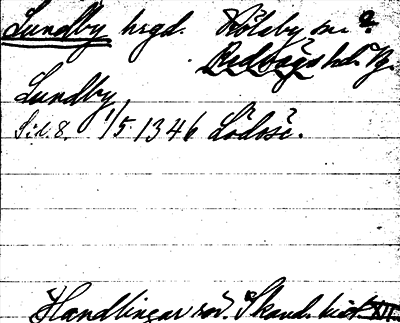 Lundby hrgd. Kölaby sn ?
Redvägs hd. Vg.
Lundby
Sid. 8. 1/5 1346 Lödöse.
Handlingar rör. Skand. hist. XII.